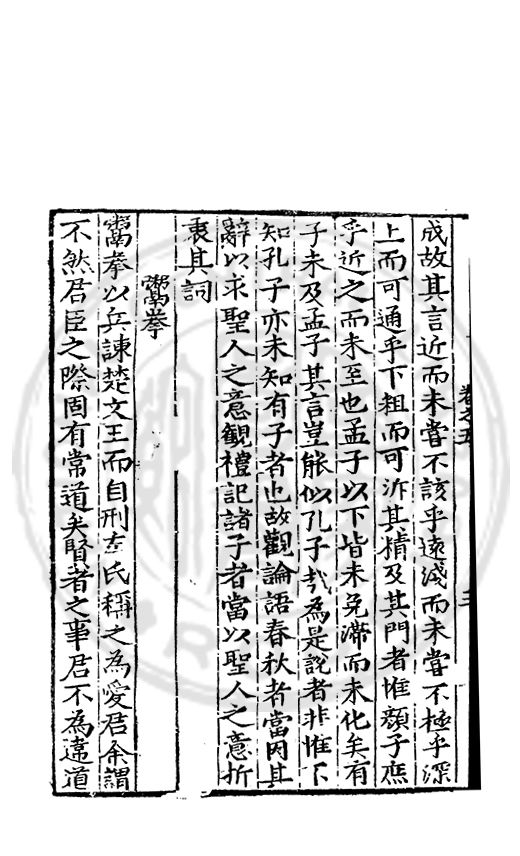 卷之五
三
成故其言近而未嘗不該乎遠淺而未嘗不極乎深
上而可通乎下粗而可泝其精及其門者惟顏子庶
乎近之而未至也孟子以下皆未免滯而未化矣有
子未及孟子其言豈能似孔子哉為是說者非惟不
知孔子亦未知有子者也故觀論語春秋者當因其
辭以求聖人之意觀禮記諸子者當以聖人之意折
衷其詞
鬻拳
鬻拳以兵諫楚文王而自刑左氏稱之為愛君余謂
不然君臣之際固有常道矣賢者之事君不為違道